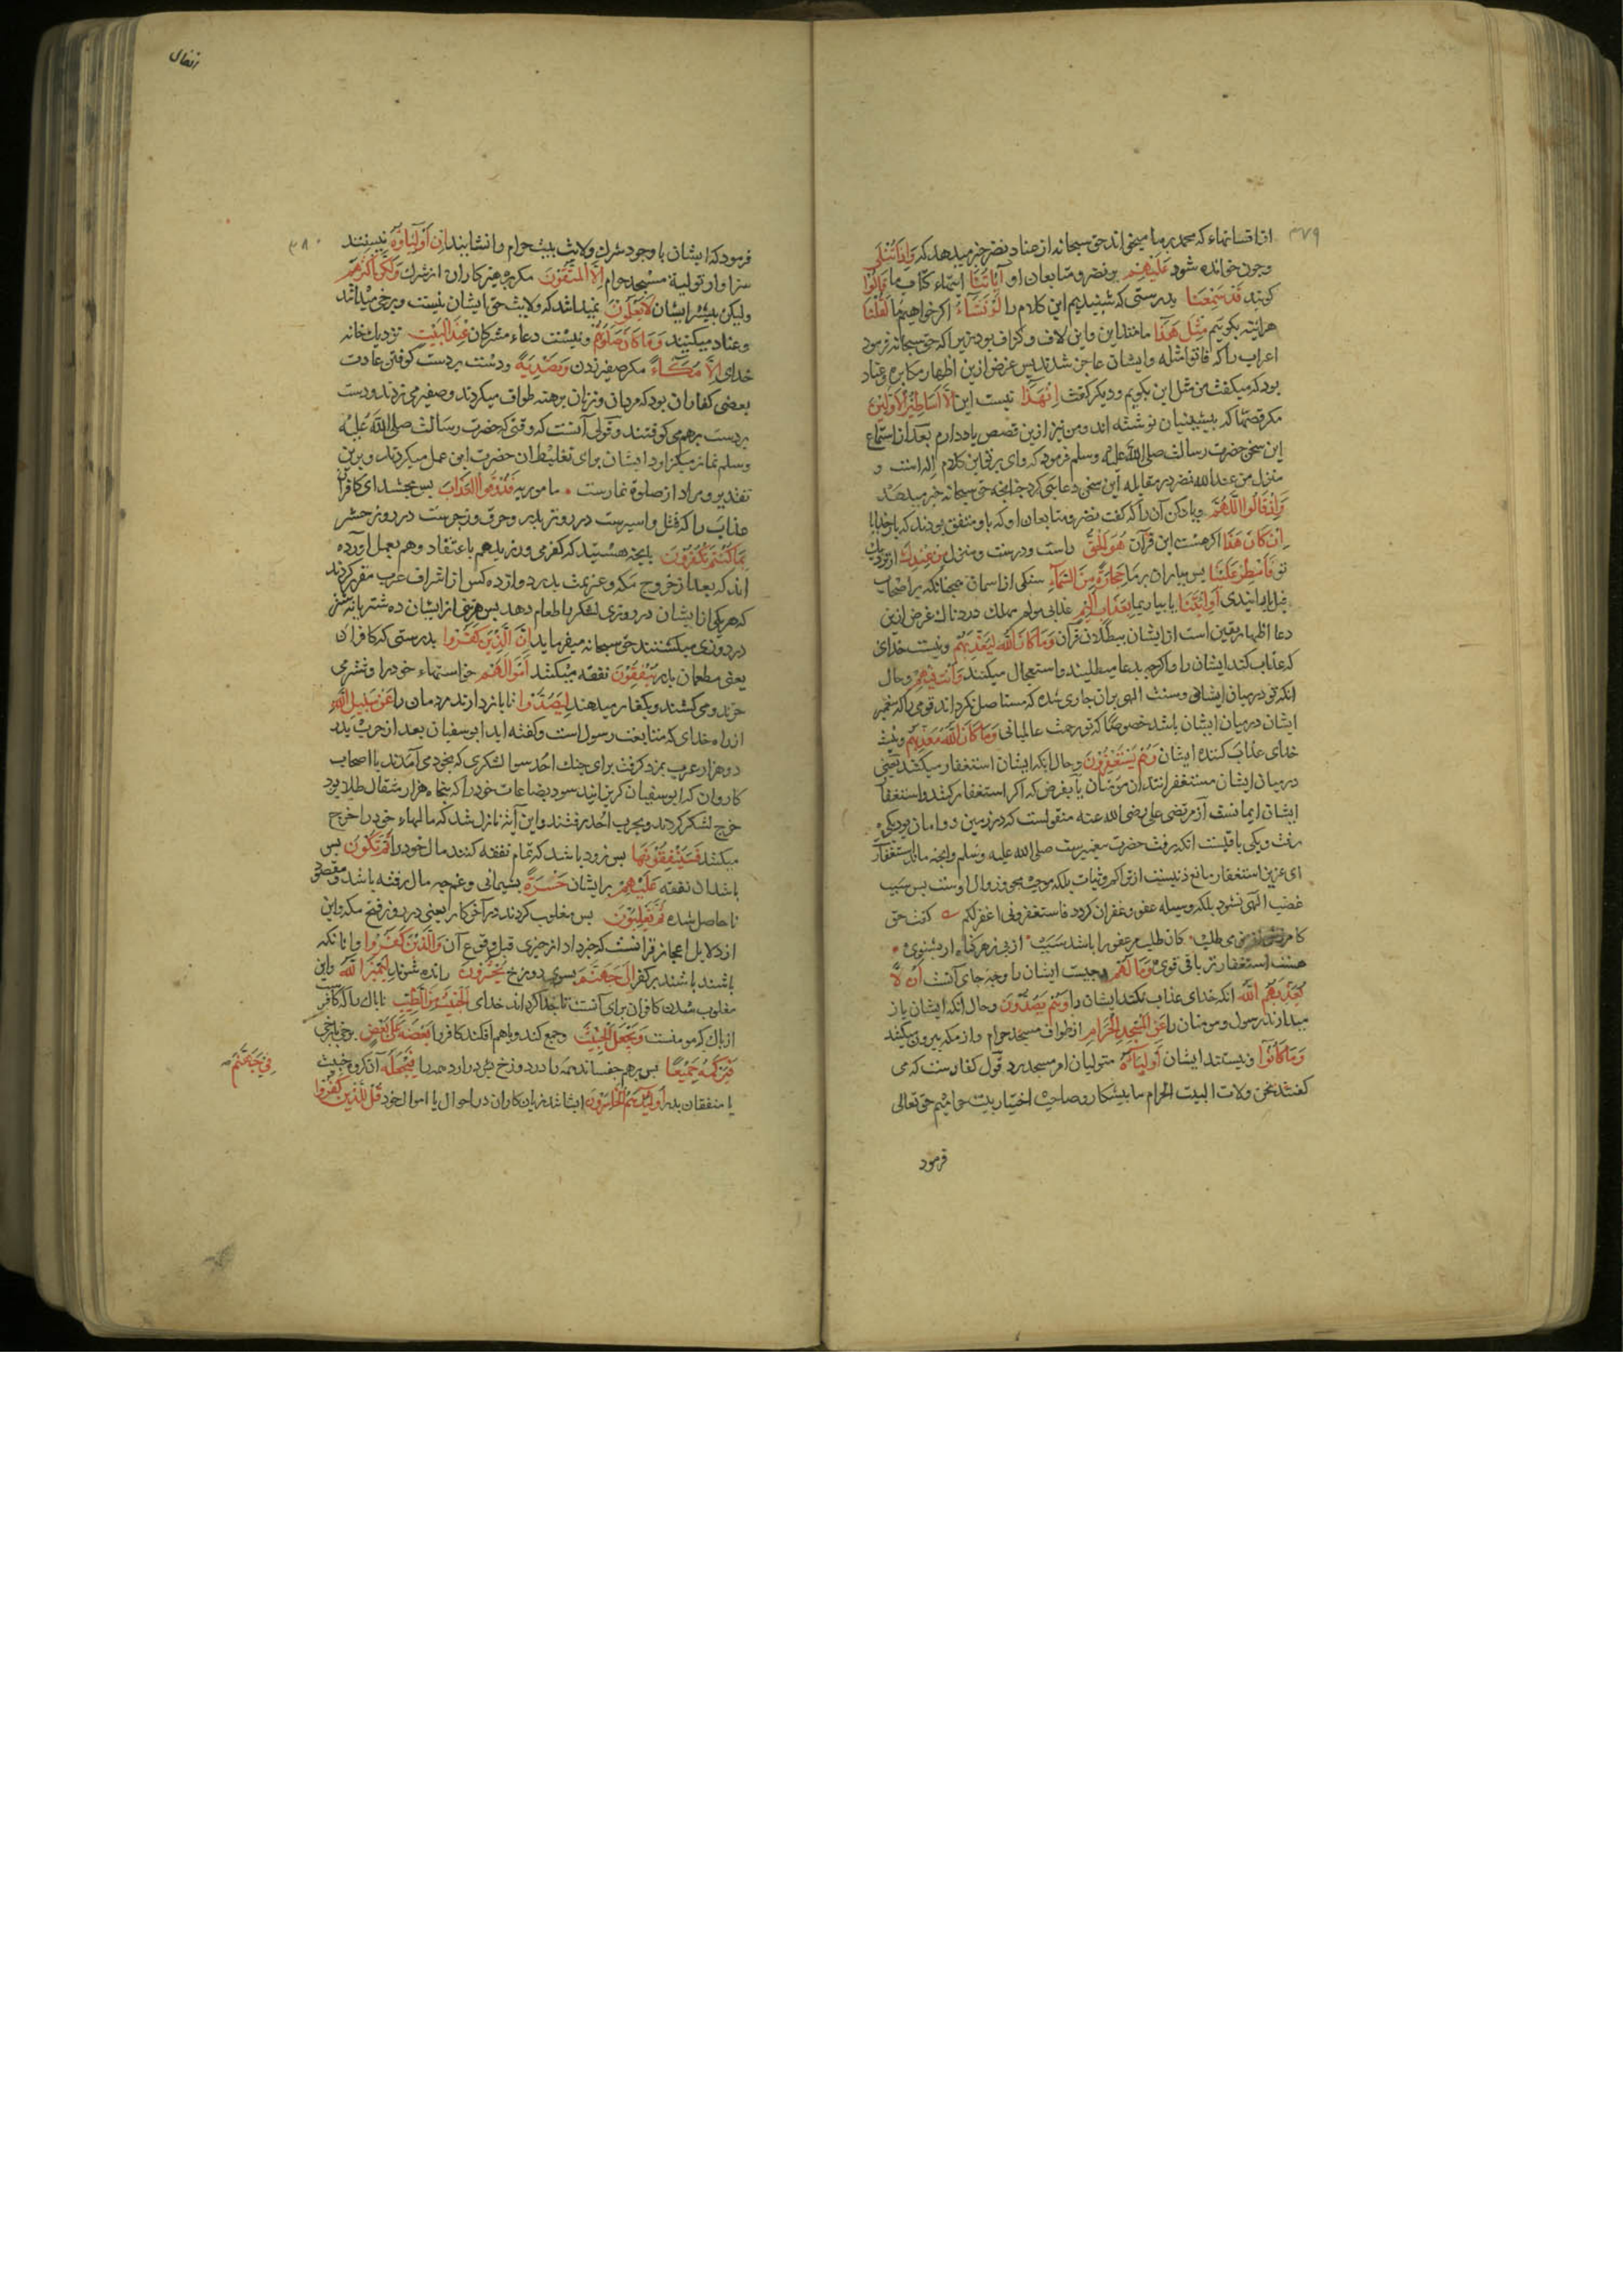 ۳۷۹
از افسانهاء که محمد بر ما میخواند حق سبحانه از عناد نضر خبر میدهد که وَاِذَا تُتْلٰی
وچون خوانده شود عَلَیْهِمْ بر نضر و متابعان او آیَاتُنَا ایتهاء کتاب ما قَالُوا
کویند قَدْ سَمِعْنَا بدرستی که شنیدیم این کلام را لَوْ نَشَآءُ اکر خواهیم ما لَقُلْنَا
هراینه بکوییم مِثْلَ هَذَا مانند این واین لاف و کزاف بود زیرا که حق سبحانه فرمود
اعراب را که فاتوا مثله وایشان عاجز شدند پس غرض ازین اظهار مکابره و عناد
بود که میکفت من مثل این بکویم و دیکر کفت اِنْ هَذَا نیست این اِلَّا اَسَاطِیْرُ الْاَوَّلِیْنَ
مکر قصها که پیشینیان نوشته اند ومن نیز ازین قصص یاد دارم بعد از استماع
این سخن حضرت رسالت صلی الله علیه وسلم فرمود که وای بر تو این کلام اله است و
منزل من عند الله نضر در مقابله این سخن دعایی کرد چنانچه حق سبحانه خبر میدهد
وَاِذْ قَالُوا اللّٰهُمَّ ویاد کن آن را که کفت نضر و متابعان او که با او متفق بودند که بار خدایا
اِنْ کَانَ هَذَا اکر هست این قرآن هُوَ الْحَقَّ راست و درست و منزل مِنْ عِنْدِكَ از نزدیك
تو فَاَمْطِرْ عَلَیْنَا پس بباران بر ما حِجَارَةً مِنَ السَّمَآءِ سنکی از اسمان همچنانکه بر اصحاب
فیل بارانیدی اَوِ ائْتِنَا یا بیار بما بِعَذَابٍ اَلِیْمٍ عذابی مولم مهلك دردناك غرض ازین
دعا اظهار یقین است از ایشان ببطلان قرآن وَمَا کَانَ اللّٰهُ لِیُعَذِّبَهُمْ ونیست خدای
که عذاب کند ایشان را واکرچه بدعا میطلبند واستعجال میکنند وَاَنْتَ فِیْهِمْ وحال
انکه تو در میان ایشانی وسنت الهی بران جاری شده که مستاصل نکرداند قومی را که پیغمبر
ایشان در میان ایشان باشد خصوصا که تو رحمت عالمیانی وَمَا کَانَ اللّٰهُ مُعَذِّبَهُمْ ونیست
خدای عذاب کننده ایشان وَهُمْ یَسْتَغْفِرُوْنَ وحال انکه ایشان استغفار میکنند یعنی
در میان ایشان مستغفرانند از مومنان یا بفرض که اکر استغفار کنند واستغفار
ایشان ایمانست از مرتضی علی رضی الله عنه منقولست که در زمین دو امان بود یکی
رفت ویکی باقیست انکه رفت حضرت پیغمبرست صلی الله علیه وسلم وانچه مانده استغفارست
ای عزیز استغفار مانع ذنبست از تراکم و ثبات بلکه موجب محو و زوال اوست پس سبب
غضب الهی نشود بلکه وسیله عفو و غفران کردد فاستغفرونی اغفر لکم کفت حق
که امرزش از من می طلب کان طلب مر عفو را باشد سبب از پی زهر کناه ار بشنوی
هست استغفار تریاق قوی وَمَا لَهُمْ وچیست ایشان را وچه جای آنست اَنْ لَا
یُعَذِّبَهُمُ اللّٰهُ انکه خدای عذاب نکند ایشان را وَهُمْ یَصُدُّوْنَ وحال انکه ایشان باز
میدارند رسول و مومنان را عَنِ الْمَسْجِدِ الْحَرَامِ از طواف مسجد حرام و از مکه بیرون میکنند
وَمَا کَانُوا ونیستند ایشان اَوْلِیَآءَهُ متولیان امر مسجد رد قول کفارست که می
کفتند نحن ولات البیت الحرام ما پیشکار و صاحب اختیار بیت حرامیم حق تعالی
فرمود
انفال
۳۸۰
فرمود که ایشان با وجود شرك ولایت بیت حرام را نشایند اِنْ اَوْلِیَاؤُهُ نیستند
سزاوار تولیة مسجد حرام اِلَّا الْمُتَّقُوْنَ مکر پرهیزکاران از شرك وَلٰکِنَّ اَکْثَرَهُمْ
ولیکن بیشتر ایشان لَا یَعْلَمُوْنَ نمیدانند که ولایت حق ایشان نیست وبرخی میدانند
وعناد میکنند وَمَا کَانَ صَلَاتُهُمْ ونیست دعاء مشرکان عِنْدَ الْبَیْتِ نزدیك خانه
خدای اِلَّا مُکَآءً مکر صفیر زدن وَتَصْدِیَةً ودست بر دست کوفتن عادت
بعضی کفار ان بود که مردان و زنان برهنه طواف میکردند وصفیر می زدند ودست
بر دست برهم می کوفتند وقولی آنست که وقتی که حضرت رسالت صلی الله علیه
وسلم نماز میکزاردد ایشان برای تغلیط ان حضرت این عمل میکردند وبرین
تقدیر مراد از صلوة نمازست ما مور به فَذُوْقُوا الْعَذَابَ پس بچشید ای کافران
عذاب را که قتل واسیرست در روز بدر وحرق وزجرست در روز حشر
بِمَا کُنْتُمْ تَکْفُرُوْنَ بانچه هستید که کفر می ورزید هم باعتقاد وهم بعمل آورده
اند که بعد از خروج مکه و عزیمت بدر دوازده کس از اشراف عرب مقرر کردند
که هریکی از ایشان در روزی لشکر را طعام دهد پس هریکی از ایشان ده شتر یا نه شتر
در روزی میکشتند حق سبحانه میفرماید اِنَّ الَّذِیْنَ کَفَرُوا بدرستی که کافران
یعنی مطعمان بدر یُنْفِقُوْنَ نفقه میکنند اَمْوَالَهُمْ خواستهاء خود را وشتر می
خرند ومی کشند وبکفار میدهند لِیَصُدُّوا تا باز دارند مردمان را عَنْ سَبِیْلِ اللّٰهِ
از راه خدای که متابعت رسول است وکفته اید ابوسفیان بعد از حرب بدر
دو هزار عرب بمزد کرفت برای جنك احد سوا لشکری که بخود می آمدند با اصحاب
کاروان که ابوسفیان کریزانید سود بضاعات خود را که پنجاه هزار مثقال طلا بود
خرج لشکر کردند وبحرب احد رفتند واین آیة نازل شد که مالهاء خود را خرج
میکنند فَسَیُنْفِقُوْنَهَا پس زود باشد که تمام نفقه کنند مال خود را ثُمَّ تَکُوْنُ پس
باشد ان نفقه عَلَیْهِمْ بر ایشان حَسْرَةً پشیمانی وغم چه مال رفته باشد ومقصود
نا حاصل شده ثُمَّ یُغْلَبُوْنَ پس مغلوب کردند در آخر کار یعنی در روز فتح مکه واین
از دلایل اعجاز قرانست که خبر داد از چیزی قبل وقوع آن وَالَّذِیْنَ کَفَرُوا وانانکه
باشند باشند بر کفر اِلٰی جَهَنَّمَ بسوی دوزخ یُحْشَرُوْنَ رانده شوند لِیَمِیْزَ اللّٰهُ واین
مغلوب شدن کافران برای آنست تا جدا کرداند خدای الْخَبِیْثَ مِنَ الطَّیِّبِ ناپاك را که کافرست
از پاك که مومنست وَیَجْعَلَ الْخَبِیْثَ وجمع کند وباهم افکند کافر را بَعْضَهُ عَلٰی بَعْضٍ برخی با برخی
فَیَرْکُمَهُ جَمِیْعًا پس برهم چفساند همه را در دوزخ فَیَجْعَلَهُ آن کروه خبیث
فِیْ جَهَنَّمَ
یا منفقان بدر اُولٰئِكَ هُمُ الْخَاسِرُوْنَ ایشانند زیان کاران در احوال یا اموال خود قُلْ لِلَّذِیْنَ کَفَرُوا